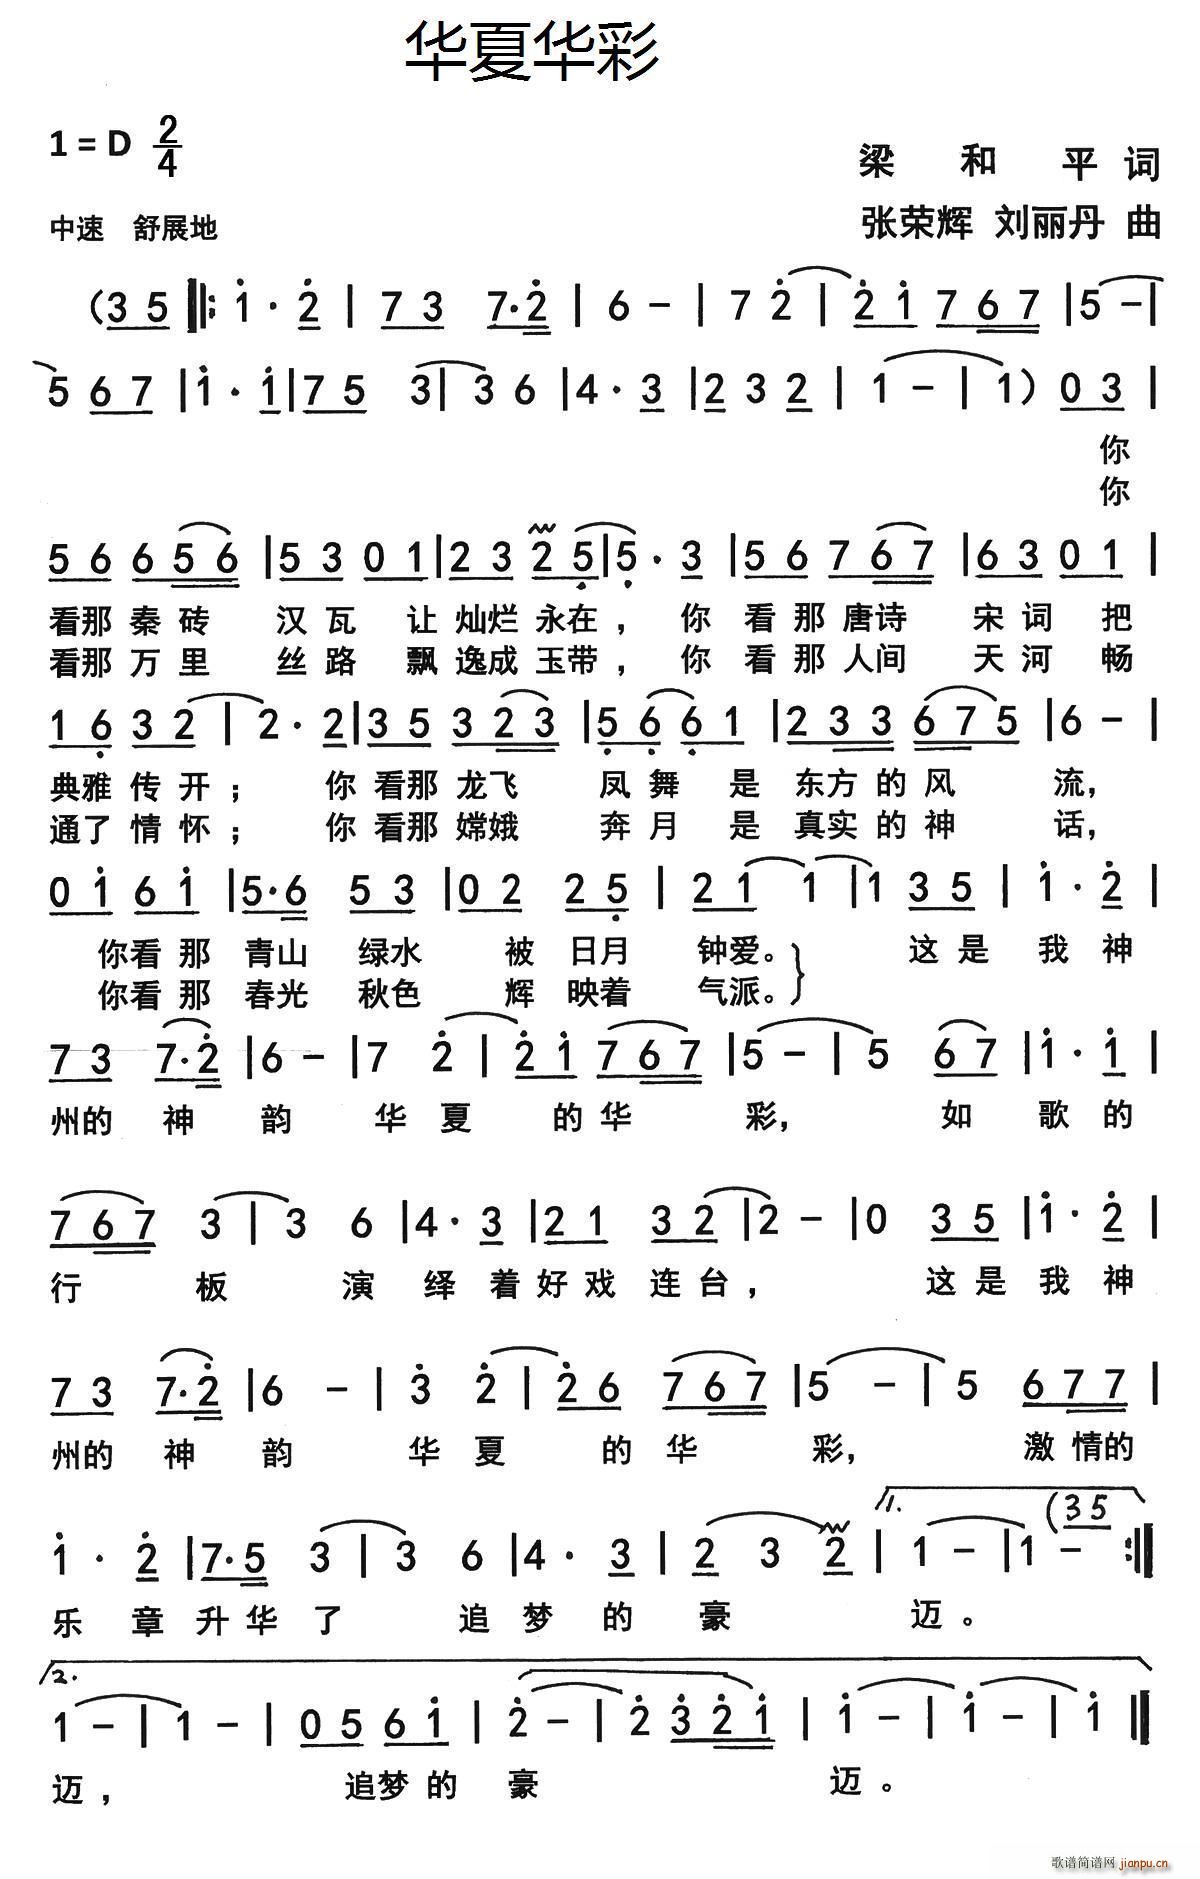 华夏华彩
1 = D 2/4
梁 和 平 词
中速 舒展地
张荣辉 刘丽丹 曲
(3 5 |: 1 · 2 | 7 3 7·2 | 6 - | 7 2 | 2 1 7 6 7 | 5 - |
5 6 7 | 1 · 1 | 7 5 3 | 3 6 | 4 · 3 | 2 3 2 | 1 - | 1 ) 0 3 |
你
你
5 6 6 5 6 | 5 3 0 1 | 2 3 2 5 | 5 · 3 | 5 6 7 6 7 | 6 3 0 1 |
看那 秦 砖 汉 瓦 让 灿烂 永在, 你 看 那 唐诗 宋 词 把
看那 万 里 丝 路 飘 逸成 玉带, 你 看 那 人间 天 河 畅
1 6 3 2 | 2 · 2 | 3 5 3 2 3 | 5 6 6 1 | 2 3 3 6 7 5 | 6 - |
典雅 传 开; 你 看那 龙飞 凤 舞 是 东方 的 风 流,
通了 情 怀; 你 看那 嫦娥 奔 月 是 真实 的 神 话,
0 1 6 1 | 5·6 5 3 | 0 2 2 5 | 2 1 1 | 1 3 5 | 1 · 2 |
你看 那 青山 绿水 被 日月 钟爱。 这 是 我 神
你看 那 春光 秋色 辉 映着 气派。
7 3 7·2 | 6 - | 7 2 | 2 1 7 6 7 | 5 - | 5 6 7 | 1 · 1 |
州的 神 韵 华 夏 的 华 彩, 如 歌 的
7 6 7 3 | 3 6 | 4 · 3 | 2 1 3 2 | 2 - | 0 3 5 | 1 · 2 |
行 板 演 绎 着 好 戏 连 台, 这 是 我 神
7 3 7·2 | 6 - | 3 2 | 2 6 7 6 7 | 5 - | 5 6 7 7 |
州的 神 韵 华 夏 的 华 彩, 激 情的
1. (3 5
1 · 2 | 7·5 3 | 3 6 | 4 · 3 | 2 3 2 | 1 - | 1 - :|
乐 章 升 华 了 追 梦 的 豪 迈。
2.
1 - | 1 - | 0 5 6 1 | 2 - | 2 3 2 1 | 1 - | 1 - | 1 ||
迈, 追梦 的 豪 迈。
歌谱简谱网 jianpu.cn